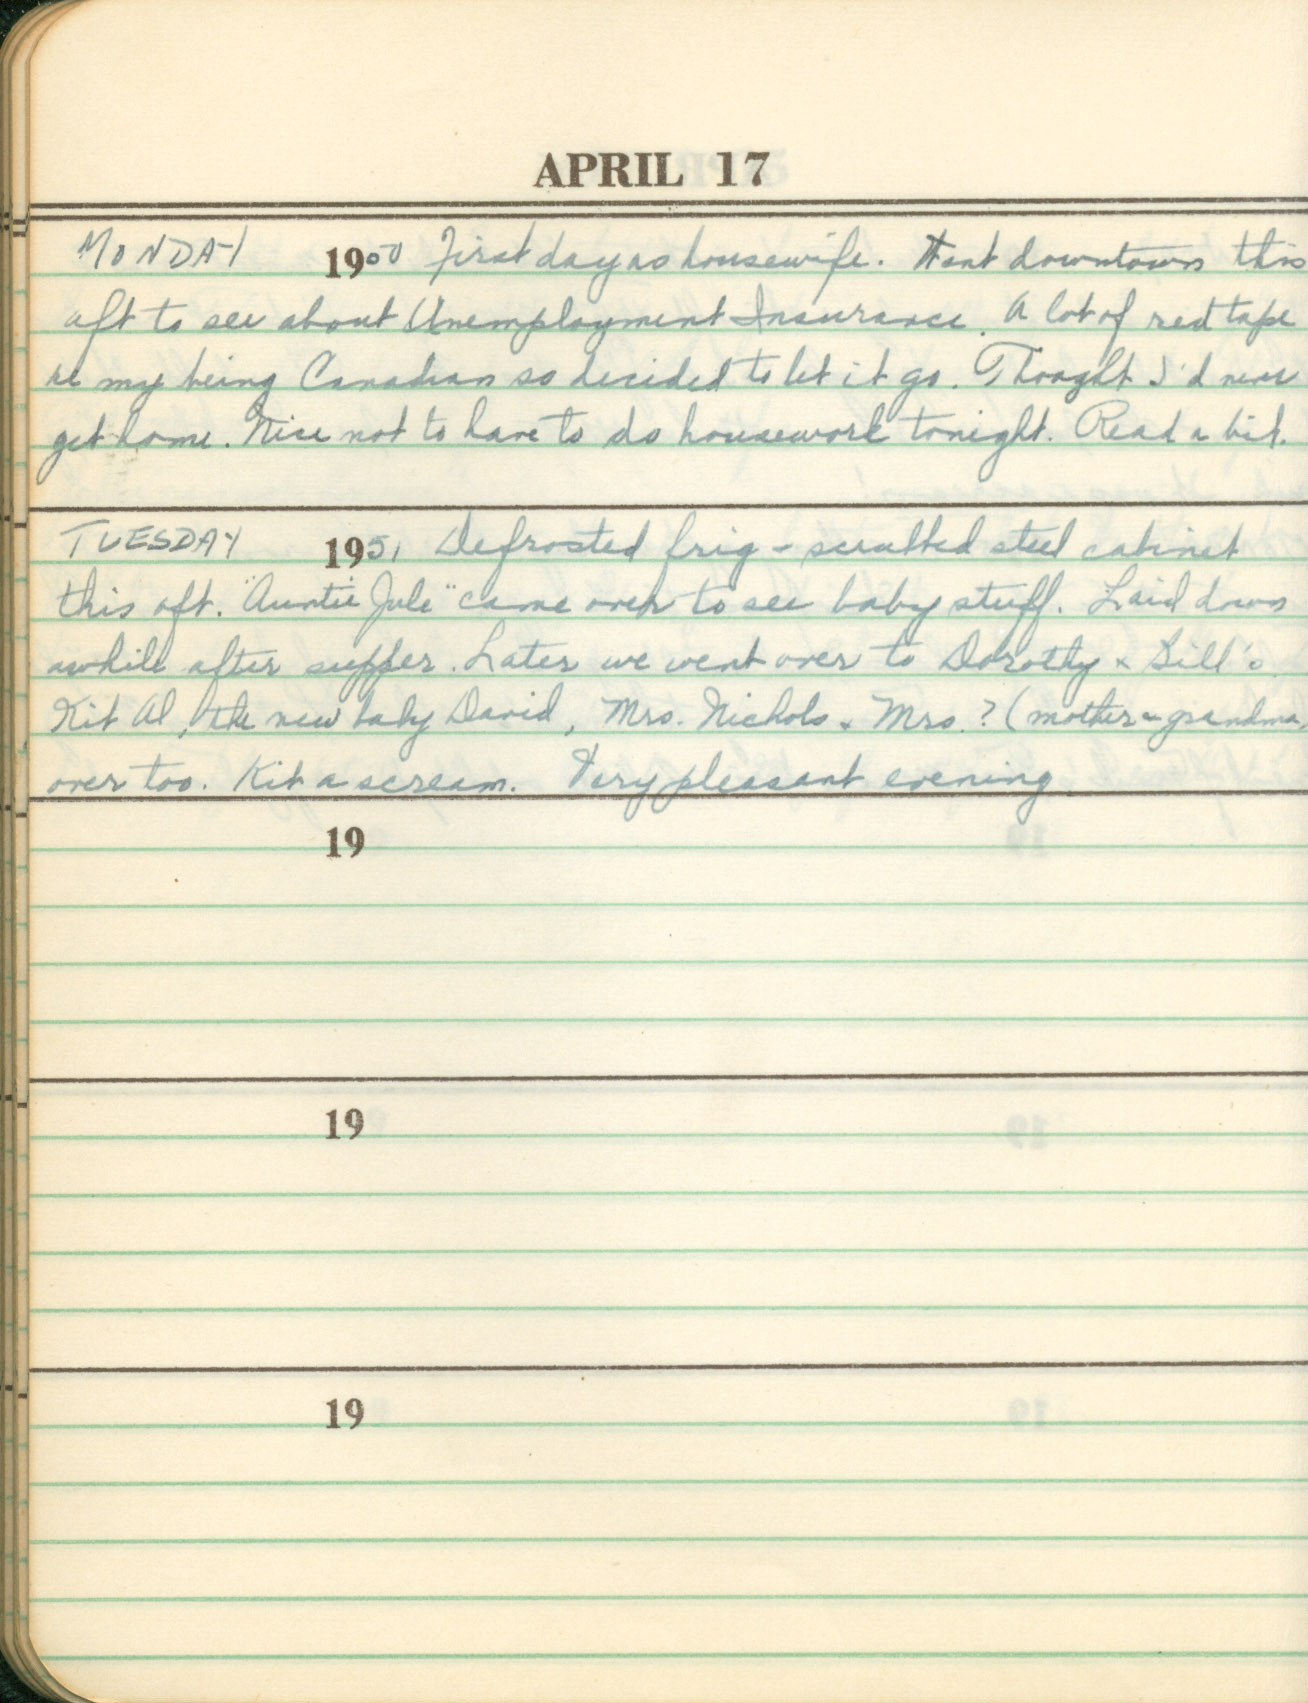 APRIL 17
MONDAY 1950 First day as housewife. Went downtown this
aft to see about Unemployment Insurance. A lot of red tape
re my being Canadian so decided to let it go. Thought I'd never
get home. Nice not to have to do housework tonight. Read a bit.
TUESDAY 1951 Defrosted frig - scrubbed steel cabinet
this aft. "Auntie Jule" came over to see baby stuff. Laid down
awhile after supper. Later we went over to Dorothy & Bill's
Kit Al, the new baby David, Mrs. Nichols & Mrs. ? (mother & grandma,
over too. Kit a scream. Very pleasant evening.
19
19
19